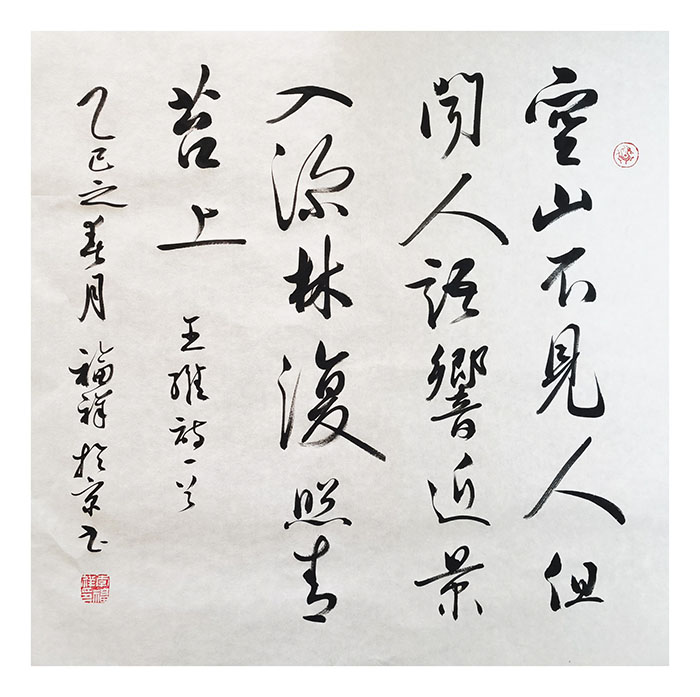 空山不見人但
聞人語響近景
入深林復照青
苔上 王維詩一首
乙巳之春月福祥於京書